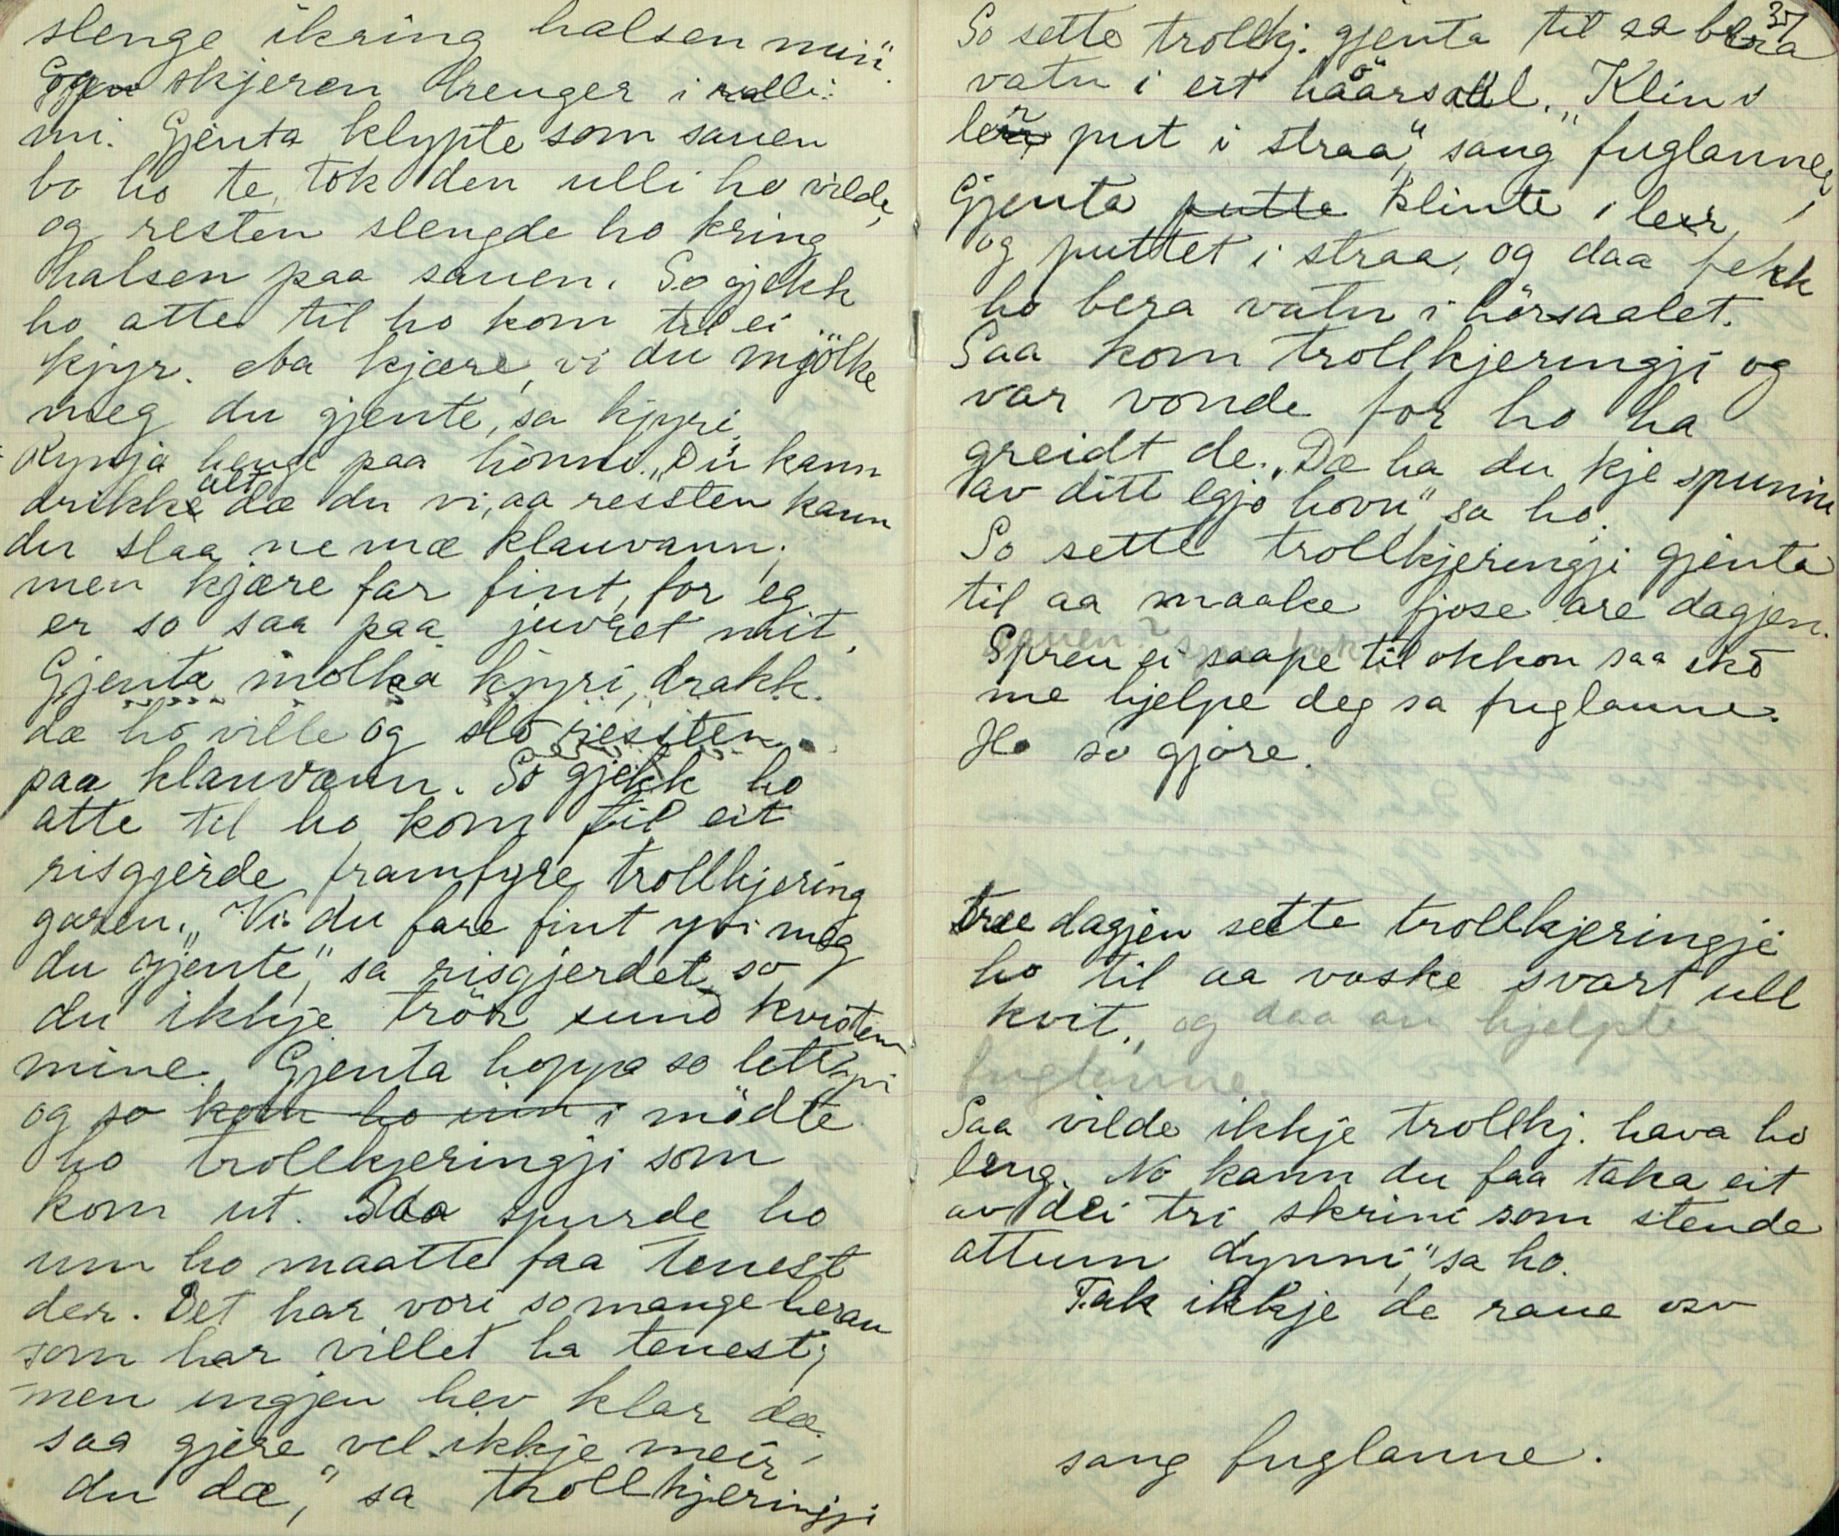 slenge ikring halsen min".
skjeren henger i ulli
mi. Gjenta klypte som sauen
bo ho te, tok den ulli ho vilde,
og resten slengde ho kring
halsen paa sauen. So gjekk
ho atte til ho kom til ei
kjyr. Aa kjære, vi du mjölke
meg du gjente, sa kjyri,
Kynja henge paa hönno. "Du kann
drikke alt dæ du vi, aa ressten kann
du slaa ne mæ klauvann;
men kjære far fint, for eg
er so saa paa juvret mit,
Gjenta molka kjyri, drakk
dæ ho ville og slo ressten
paa klauvann. So gjekk ho
atte til ho kom til eit
risgjerde framfyre trollkjering
garen. "Vi du fare fint yvi meg
du gjente," sa risgjerdet so
du ikkje trör sund kvisten
mine. Gjenta hoppa so lett yvi
og so kom ho inn i mödte
ho trollkjeringji som
kom ut. Saa spurde ho
um ho maatte faa tenest
der. Det har vori so mange heran
som har villet ha tenest;
men ingjen hev klar dæ,
saa gjere vel ikkje meir
du dæ," sa trollkjeringji
35
So sette trollkj. gjenta til aa bera
vatn i eit håårsaal. "Klin i
leir put i straa," sang fuglanne,
Gjenta putta klinte i leir,
og puttet i straa, og daa fekk
ho bera vatn i hörsaalet.
Saa kom trollkjeringji og
var vonde for ho ha
greidt de. "Dæ ha du kje spunni
av ditt egjo hovu" sa ho.
So sette trollkjeringji gjenta
til aa maake fjose are dagjen.
Spren ei saape til okkon saa sko
me hjelpe deg sa fuglanne.
Ho so gjore.
træ dagjen sette trollkjeringji
ho til aa vaske svart ull
kvit, og daa au hjelpte
fuglanne.
Saa vilde ikkje trollkj. hava ho
leng. No kann du faa taka eit
av dei tri skrini som stende
attum dynni," sa ho.
Tak ikkje de raue osv
sang fuglanne.